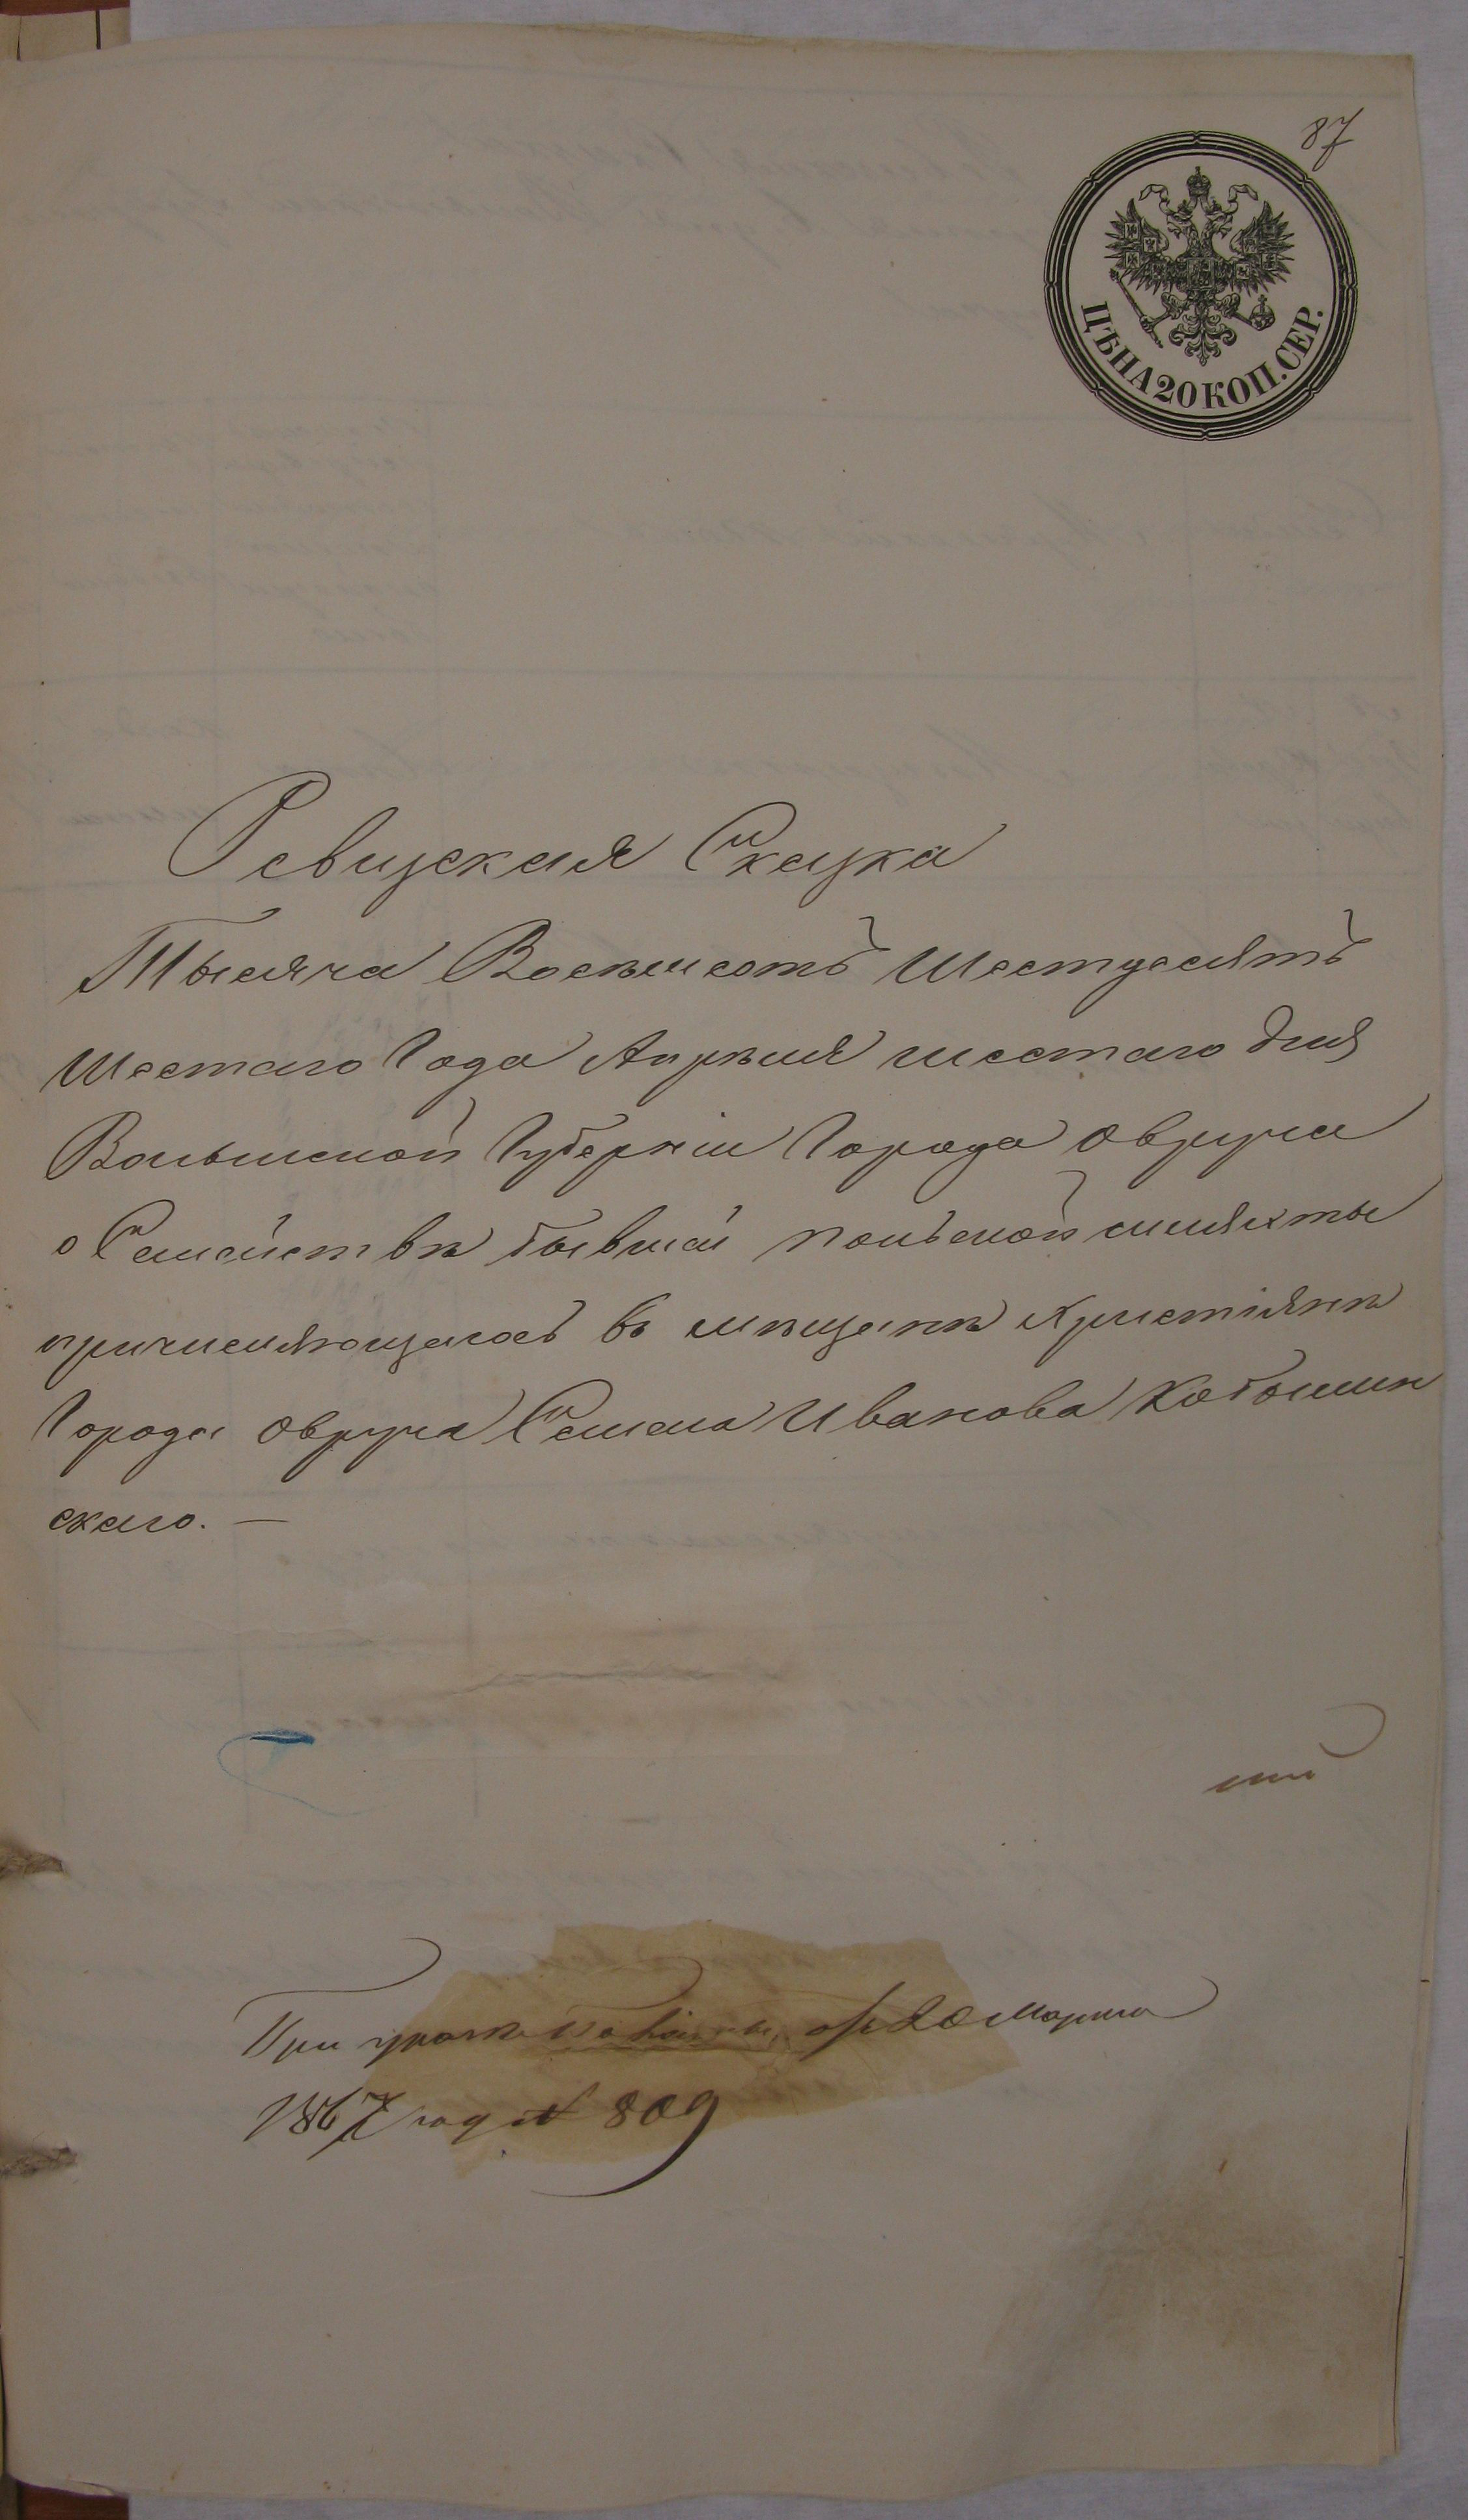 87
ЦѢНА 20 КОП. СЕР.
Ревизская Сказка
Тысяча Восемьсотъ Шестдесятъ
Шестаго Года Апрѣля шестаго дня
Волынской Губерніи Города Овруча
о Семействѣ бывшей польской шляхты
причисляющагося въ мѣщане Христіяне
Города Овруча Семена Иванова Кобылин
скаго. —
При указѣ Палаты отъ 20 Марта
1867 год № 809